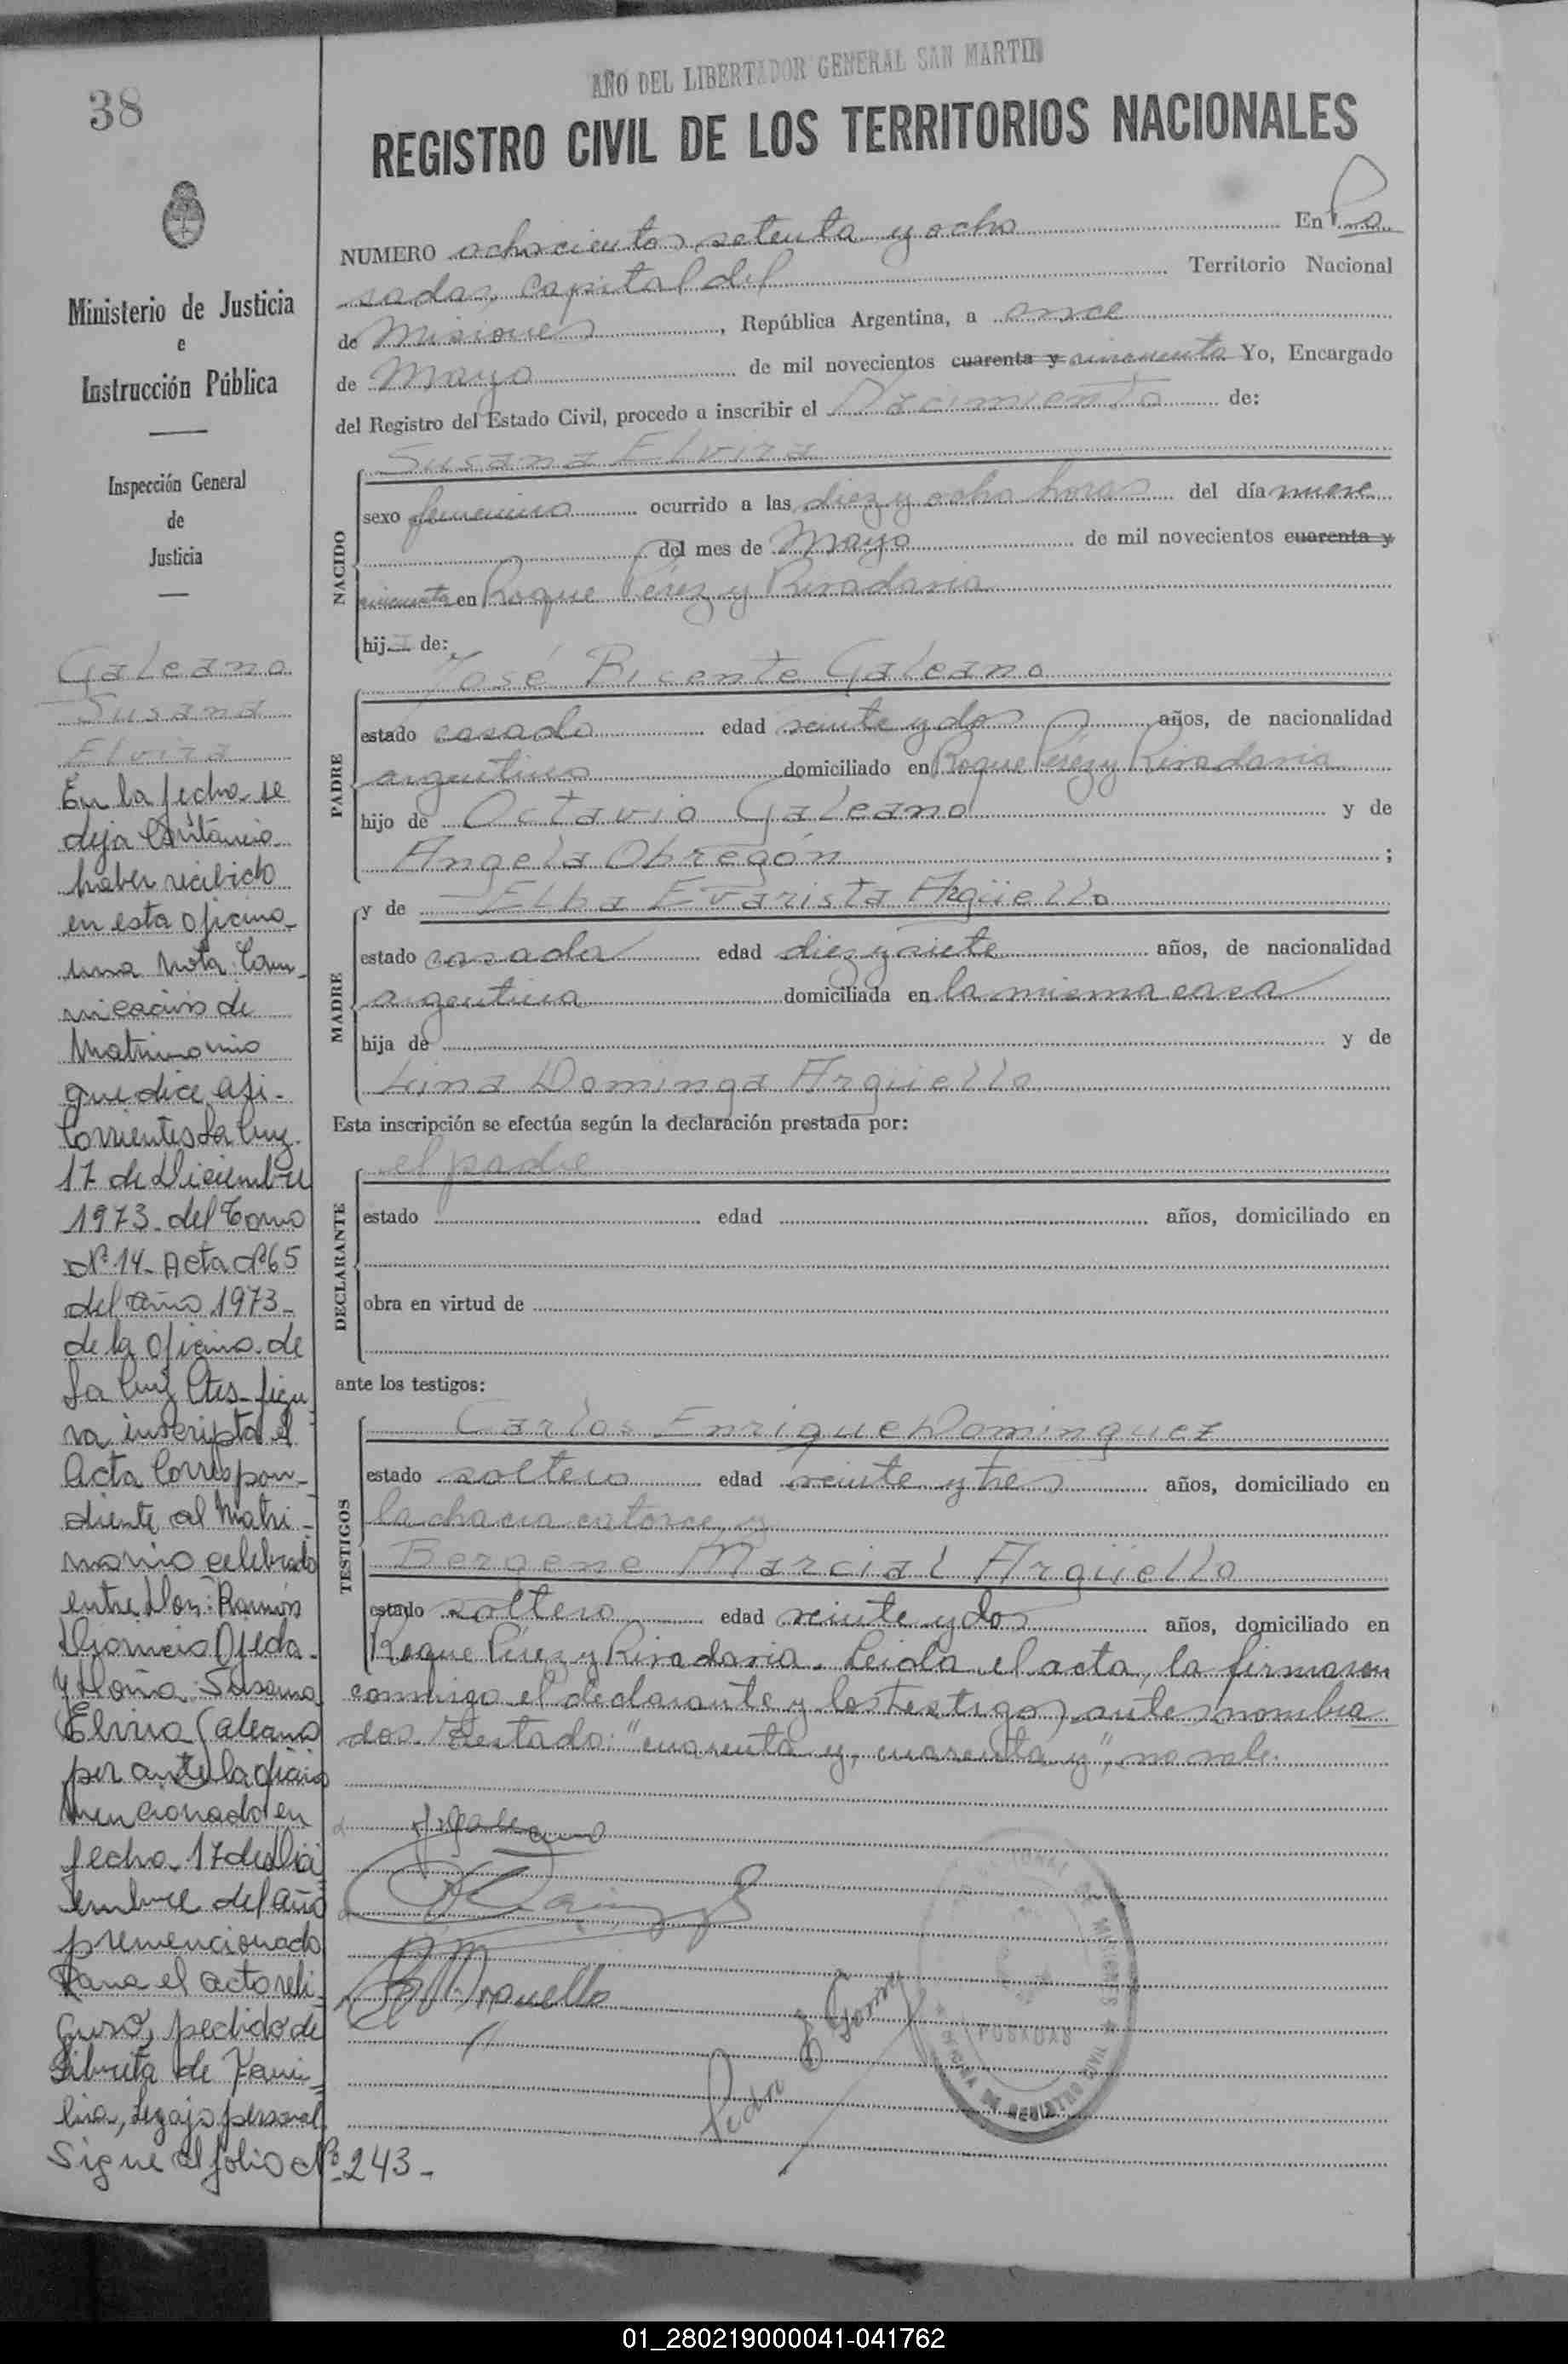 38
Ministerio de Justicia
e
Instrucción Pública
Inspección General
de
Justicia
Galeano
Susana
Elvira
En la fecha se
deja Contancia
haber recibido
en esta oficina
una nota Com-
nicación de
Matrimonio
que dice asi.
Corrientes La Cruz.
17 de Diciembre
1973. del Tomo
Nº 14. Acta Nº 65
del año 1973-
de la oficina de
La Cruz Ctes. figu-
ra inscripta el
Acta Correspon-
diente al Matri-
monio celebrado
entre Don: Ramón
Dionicio Ojeda.
y Doña: Susana
Elvira Galeano
per ante la oficina
mencionado en
fecha 17 de Dici
embre del año
premencionado
Para el acto reli-
gioso, pedido de
Libreta de Fami-
lia, Legajo personal
Sigue al folio Nº 243-
AÑO DEL LIBERTADOR GENERAL SAN MARTIN
REGISTRO CIVIL DE LOS TERRITORIOS NACIONALES
NUMERO ochocientos setenta y ocho En Po
sadas, capital del Territorio Nacional
de Misiones, República Argentina, a once
de Mayo de mil novecientos cuarenta y cincuenta Yo, Encargado
del Registro del Estado Civil, procedo a inscribir el Nacimiento de:
NACIDO
Susana Elvira
sexo femenino ocurrido a las diez y ocho horas del día nueve
del mes de Mayo de mil novecientos cuarenta y
cincuenta en Roque Pérez y Rivadavia
hija de:
PADRE
José Bicente Galeano
estado casado edad veinte y dos años, de nacionalidad
argentino domiciliado en Roque Pérez y Rivadavia
hijo de Octavio Galeano y de
Angela Obregón;
MADRE
y de Elba Evarista Argüello
estado casada edad diez y siete años, de nacionalidad
argentina domiciliada en la misma casa
hija de y de
Lina Dominga Argüello
Esta inscripción se efectúa según la declaración prestada por:
DECLARANTE
el padre
estado edad años, domiciliado en
obra en virtud de
ante los testigos:
TESTIGOS
Carlos Enrique Dominguez
estado soltero edad veinte y tres años, domiciliado en
la chacra catorce, y
Bergene Marcial Argüello
estado soltero edad veinte y dos años, domiciliado en
Roque Pérez y Rivadavia. Leida el acta, la firmaron
conmigo el declarante y los testigos antes nombra
dos. Testado: "cuarenta y, cuarenta y", no vale.
POSADAS
OFICINA DE REGISTRO CIVIL
01_280219000041-041762